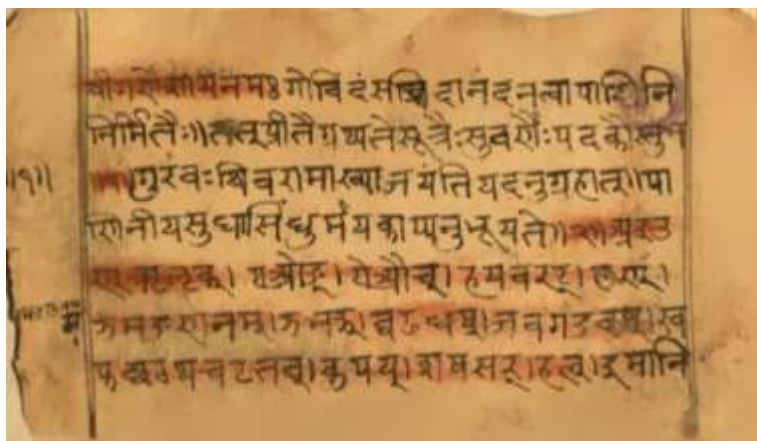 श्रीगणेशायनमः गोविंदंसच्चिदानंदंनत्वापाणिनि
निर्मितैः॥तत्प्रीत्यैग्रथ्यतेसूत्रैःसुवर्णैःपदकौस्तुभ
॥१॥ गुरवःशिवरामाख्याजयंतियदनुग्रहात्॥पा
णिनीयसुधासिंधुर्मयकाप्यनुभूयते॥ अइउ
ण् ऋऌक्। एओङ्। ऐऔच्। हयवरट्। लण्।
ञमङणनम्। झभञ्। घढधष्। जबगडदश्। ख
फछठथचटतव्। कपय्। शषसर्। हल्। इमानि